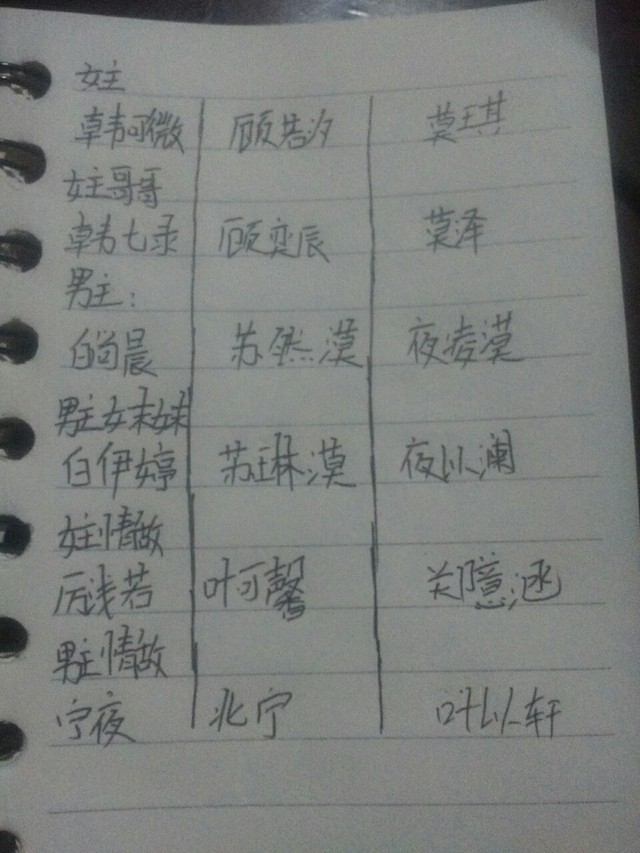 女主
韩阿微 顾浩汐 莫琪
女主哥哥
韩七录 顾奕辰 莫泽
男主:
白尚晨 苏然漠 夜凌漠
男主妹妹
白伊婷 苏琳漠 夜以澜
女主情敌
厉浅若 叶可馨
男主情敌
宁夜 北宁 叶以轩